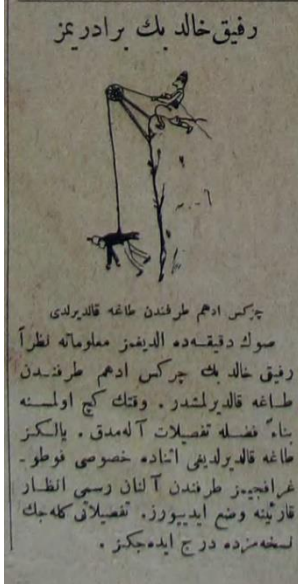 رفیق خالد بك برادریمز
چركس ادهم طرفندن طاغه قالدیرلدی
صوك دقیقه‌ده الدیغمز معلوماته نظراً
رفیق خالد بك چركس ادهم طرفندن
طاغه قالدیرلمشدر. وقتك كچ اولمسنه
بناءً فضله تفصیلات آله‌مدق. یالكز
طاغه قالدیرلدیغی اثناده خصوصی فوطو-
غرافجیمز طرفندن آلنان رسمی انظار
قارئینه وضع ایدییورز. تفصیلاتی كله‌جك
نسخه‌مزده درج ایده‌جكز.